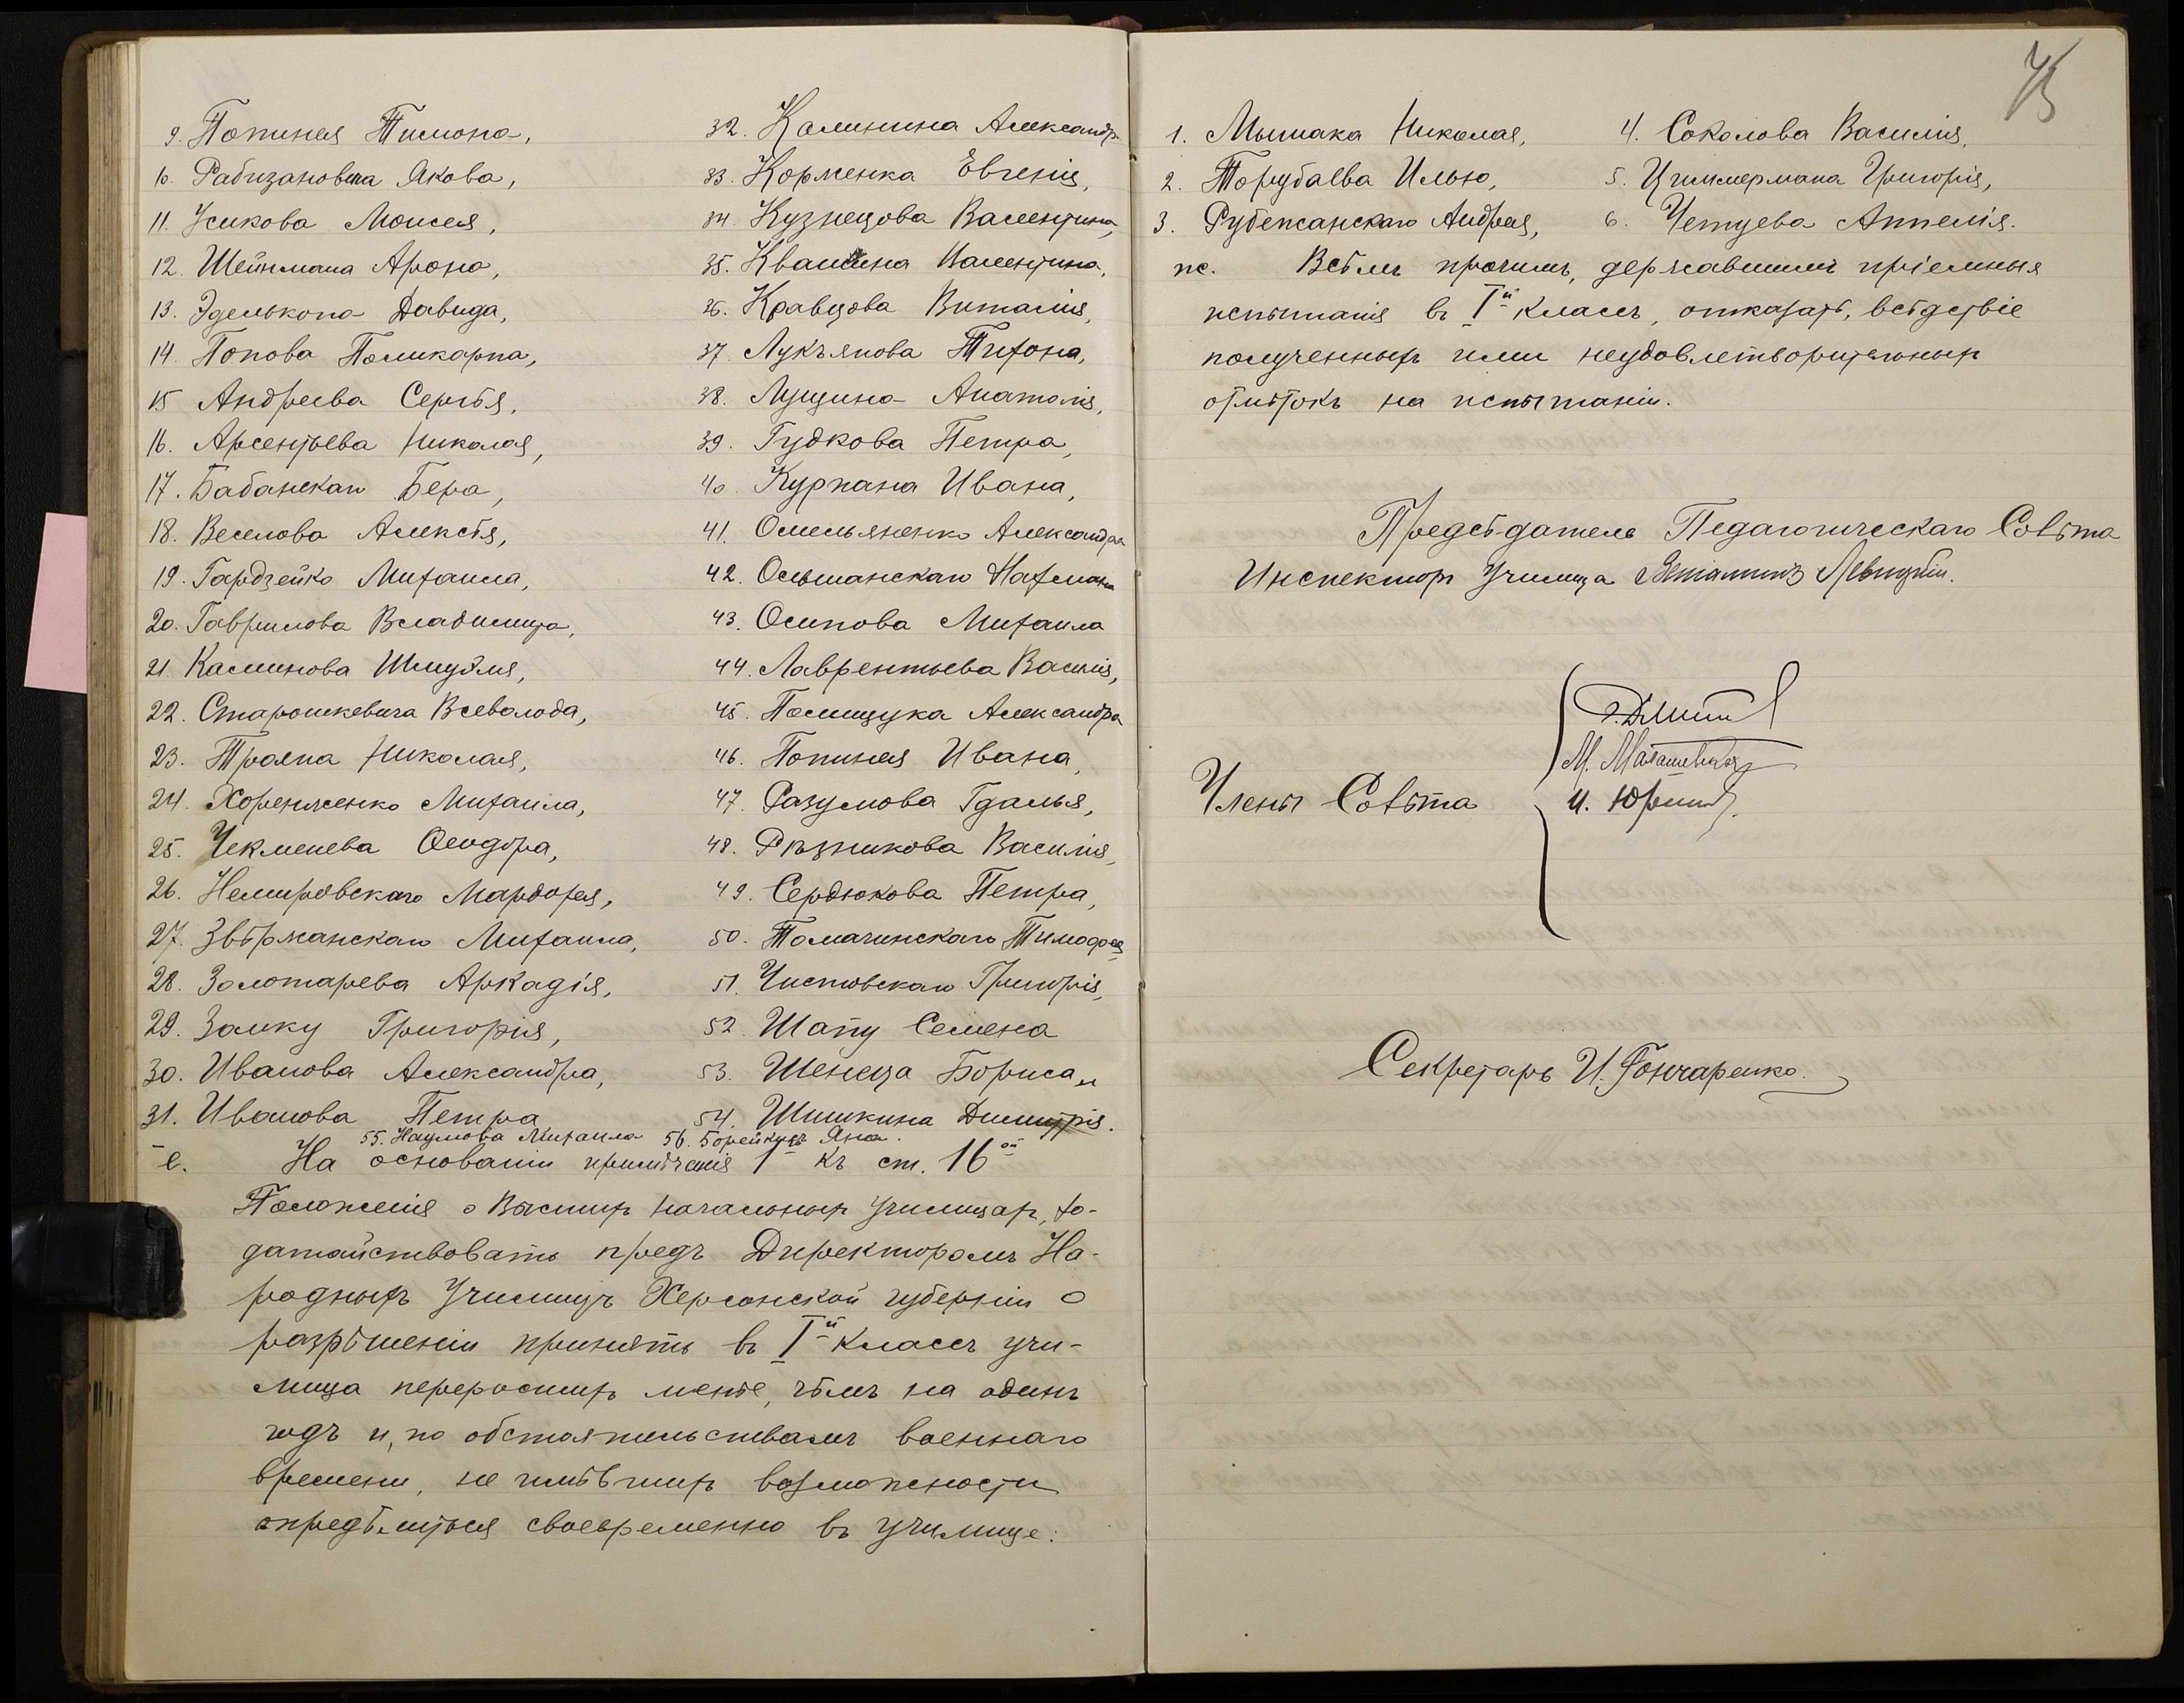 9. Попиная Тимона,
10. Рабизановича Якова,
11. Усикова Моисея,
12. Шейнмана Арона,
13. Эделькопа Давида,
14. Попова Поликарпа,
15 Андреева Сергѣя,
16. Арсентьева Николая,
17. Бабанскаго Бера,
18. Веселова Алексѣя,
19. Гардзейко Михаила,
20. Гаврилова Владимира,
21. Калинова Шмуэля,
22. Старошкевича Всеволода,
23. Траяна Николая,
24. Хоренженко Михаила,
25. Чекменева Ѳеодора,
26. Немировскаго Мардохея,
27. Звѣржанскаго Михаила,
28. Золотарева Аркадія,
29. Заику Григорія,
30. Иванова Александра,
31. Иванова Петра
32. Калинина Александра
33. Корженка Евгенія,
34. Кузнецова Валентина,
35. Квашина Валентина,
36. Кравцова Виталія,
37. Лукъянова Тихона,
38. Лущина Анатолія,
39. Гудкова Петра,
40. Курпана Ивана,
41. Омельяненко Александра
42. Ольшанскаго Нахмана
43. Осипова Михаила
44. Лаврентьева Василія,
45. Полищука Александра
46. Попиная Ивана,
47. Разумова Гдалья,
48. Рѣзникова Василія,
49. Сердюкова Петра,
50. Томачинскаго Тимофея
51. Чистовскаго Григорія,
52. Шапу Семена
53. Шенеца Бориса и
54. Шишкина Димитрія.
55. Наумова Михаила 56. Борейкусъ Яна.
е. На основаніи примѣчанія 1 къ ст. 16ой
Положенія о Высшихъ начальныхъ училищахъ, хо-
датайствовать предъ Директоромъ На-
родныхъ Училищъ Херсонской губерніи о
разрѣшеніи принять въ Iй классъ учи-
лища переросшихъ менѣе, чѣмъ на одинъ
годъ и, по обстоятельствамъ военнаго
времени, не имѣвшихъ возможности
опредѣлиться своевременно въ училище:
75
1. Мышака Николая,
2. Торубаева Илью,
3. Рубежанскаго Андрея,
4. Соколова Василія,
5. Циммермана Григорія,
6. Четуева Аппелія.
ж. Всѣмъ прочимъ, державшимъ пріемныя
испытанія въ Iй классъ, отказать, вслѣдствіе
полученныхъ ими неудовлетворительныхъ
отмѣтокъ на испытаніи.
Предсѣдатель Педагогическаго Совѣта
Инспекторъ Училища Веніаминъ Левицкій.
М. Малашевская
Члены Совѣта
Секретарь И. Гончаренко.